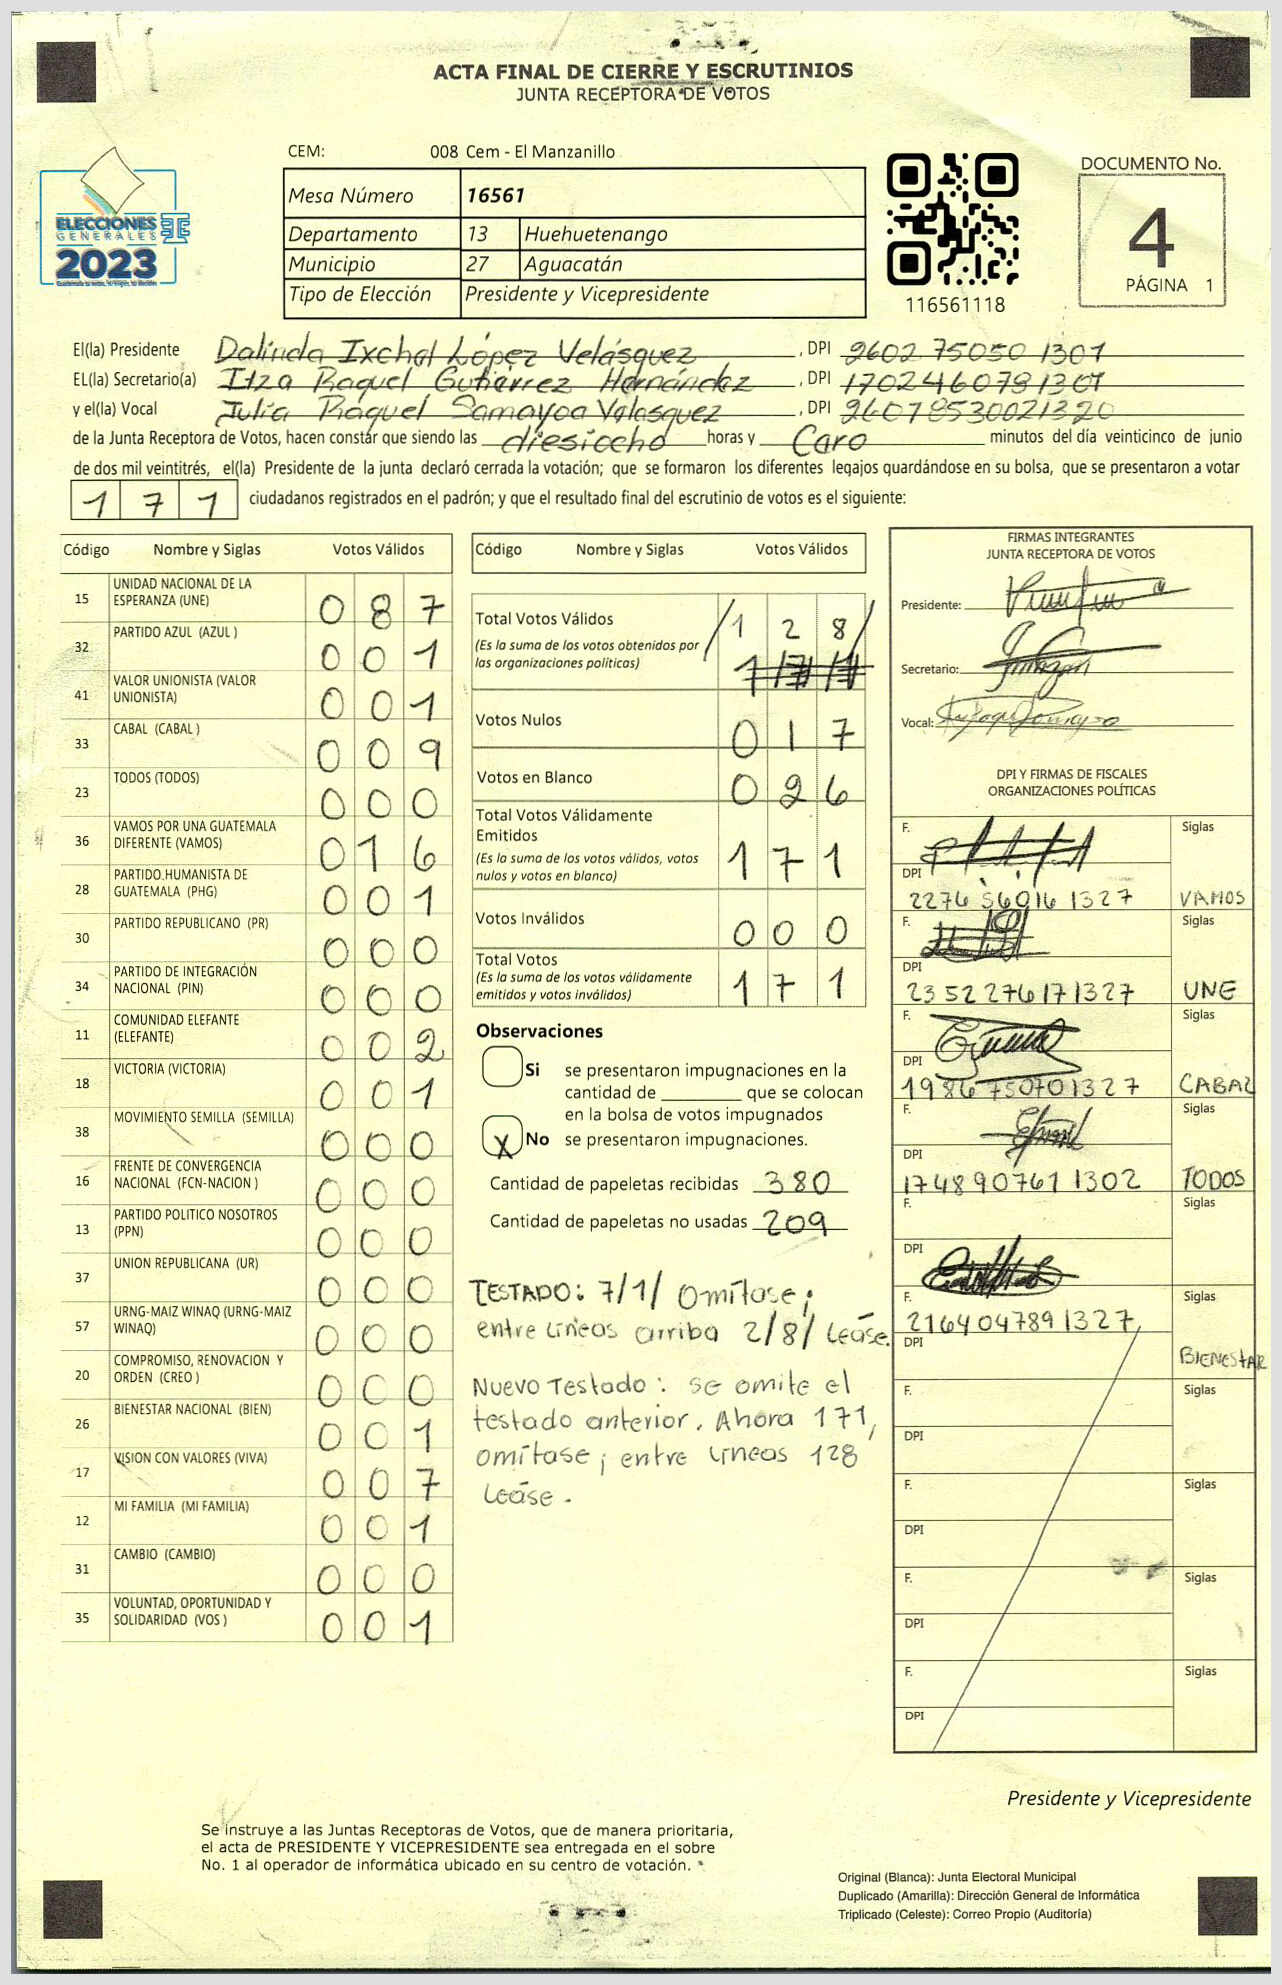 ACTA FINAL DE CIERRE Y ESCRUTINIOS
JUNTA RECEPTORA DE VOTOS
CEM: 008 Cem - El Manzanillo
ELECCIONES
GENERALES
2023
Mesa Número 16561
Departamento 13 Huehuetenango
Municipio 27 Aguacatán
Tipo de Elección Presidente y Vicepresidente
116561118
DOCUMENTO No.
4
PÁGINA 1
El(la) Presidente Dalinda Ixchel López Velásquez, DPI 2602 75050 1301
EL(la) Secretario(a) Itza Raquel Gutiérrez Hernández, DPI 1702460791301
y el(la) Vocal Julia Raquel Samayoa Velasquez, DPI 26078530021320
de la Junta Receptora de Votos, hacen constar que siendo las diesiocho horas y Caro minutos del día veinticinco de junio
de dos mil veintitrés, el(la) Presidente de la junta declaró cerrada la votación; que se formaron los diferentes legajos quardándose en su bolsa, que se presentaron a votar
1 7 1 ciudadanos registrados en el padrón; y que el resultado final del escrutinio de votos es el siguiente:
Código Nombre y Siglas Votos Válidos
15 UNIDAD NACIONAL DE LA
ESPERANZA (UNE) 0 8 7
32 PARTIDO AZUL (AZUL ) 0 0 1
41 VALOR UNIONISTA (VALOR
UNIONISTA) 0 0 1
33 CABAL (CABAL ) 0 0 9
23 TODOS (TODOS) 0 0 0
36 VAMOS POR UNA GUATEMALA
DIFERENTE (VAMOS) 0 1 6
28 PARTIDO.HUMANISTA DE
GUATEMALA (PHG) 0 0 1
30 PARTIDO REPUBLICANO (PR) 0 0 0
34 PARTIDO DE INTEGRACIÓN
NACIONAL (PIN) 0 0 0
11 COMUNIDAD ELEFANTE
(ELEFANTE) 0 0 2
18 VICTORIA (VICTORIA) 0 0 1
38 MOVIMIENTO SEMILLA (SEMILLA) 0 0 0
16 FRENTE DE CONVERGENCIA
NACIONAL (FCN-NACION ) 0 0 0
13 PARTIDO POLITICO NOSOTROS
(PPN) 0 0 0
37 UNION REPUBLICANA (UR) 0 0 0
57 URNG-MAIZ WINAQ (URNG-MAIZ
WINAQ) 0 0 0
20 COMPROMISO, RENOVACION Y
ORDEN (CREO ) 0 0 0
26 BIENESTAR NACIONAL (BIEN) 0 0 1
17 VISION CON VALORES (VIVA) 0 0 7
12 MI FAMILIA (MI FAMILIA) 0 0 1
31 CAMBIO (CAMBIO) 0 0 0
35 VOLUNTAD, OPORTUNIDAD Y
SOLIDARIDAD (VOS ) 0 0 1
Código Nombre y Siglas Votos Válidos
Total Votos Válidos /1 2 8/
(Es la suma de los votos obtenidos por
las organizaciones políticas)
Votos Nulos 0 1 7
Votos en Blanco 0 2 6
Total Votos Válidamente
Emitidos
(Es la suma de los votos válidos, votos
nulos y votos en blanco) 1 7 1
Votos Inválidos 0 0 0
Total Votos
(Es la suma de los votos válidamente
emitidos y votos inválidos) 1 7 1
Observaciones
Si se presentaron impugnaciones en la
cantidad de ________ que se colocan
en la bolsa de votos impugnados
X No se presentaron impugnaciones.
Cantidad de papeletas recibidas 380
Cantidad de papeletas no usadas 209
TESTADO: 7/1/ Omítase;
entre líneas arriba 2/8/ Leáse.
Nuevo Testado: se omite el
testado anterior. Ahora 171,
omítase; entre líneas 128
Leáse.
FIRMAS INTEGRANTES
JUNTA RECEPTORA DE VOTOS
Presidente:
Secretario:
Vocal:
DPI Y FIRMAS DE FISCALES
ORGANIZACIONES POLÍTICAS
F. Siglas
DPI
2276 56016 1327 VAMOS
F. Siglas
DPI
2352276171327 UNE
F. Siglas
DPI
1986750701327 CABAL
F. Siglas
DPI
1748907611302 TODOS
F. Siglas
DPI
F. Siglas
2164047891327
DPI BIENESTAR
F. Siglas
DPI
F. Siglas
DPI
F. Siglas
DPI
F. Siglas
DPI
Presidente y Vicepresidente
Se instruye a las Juntas Receptoras de Votos, que de manera prioritaria,
el acta de PRESIDENTE Y VICEPRESIDENTE sea entregada en el sobre
No. 1 al operador de informática ubicado en su centro de votación.
Original (Blanca): Junta Electoral Municipal
Duplicado (Amarilla): Dirección General de Informática
Triplicado (Celeste): Correo Propio (Auditoría)